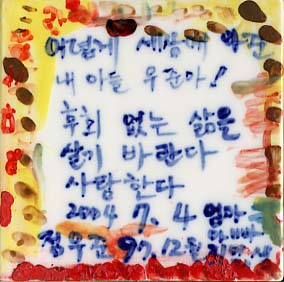 어렵게 세상에 나온
내 아들 우준아!
후회 없는 삶을
살기 바란다
사랑한다
2004 7. 4 엄마
아빠
정우준 97. 12월